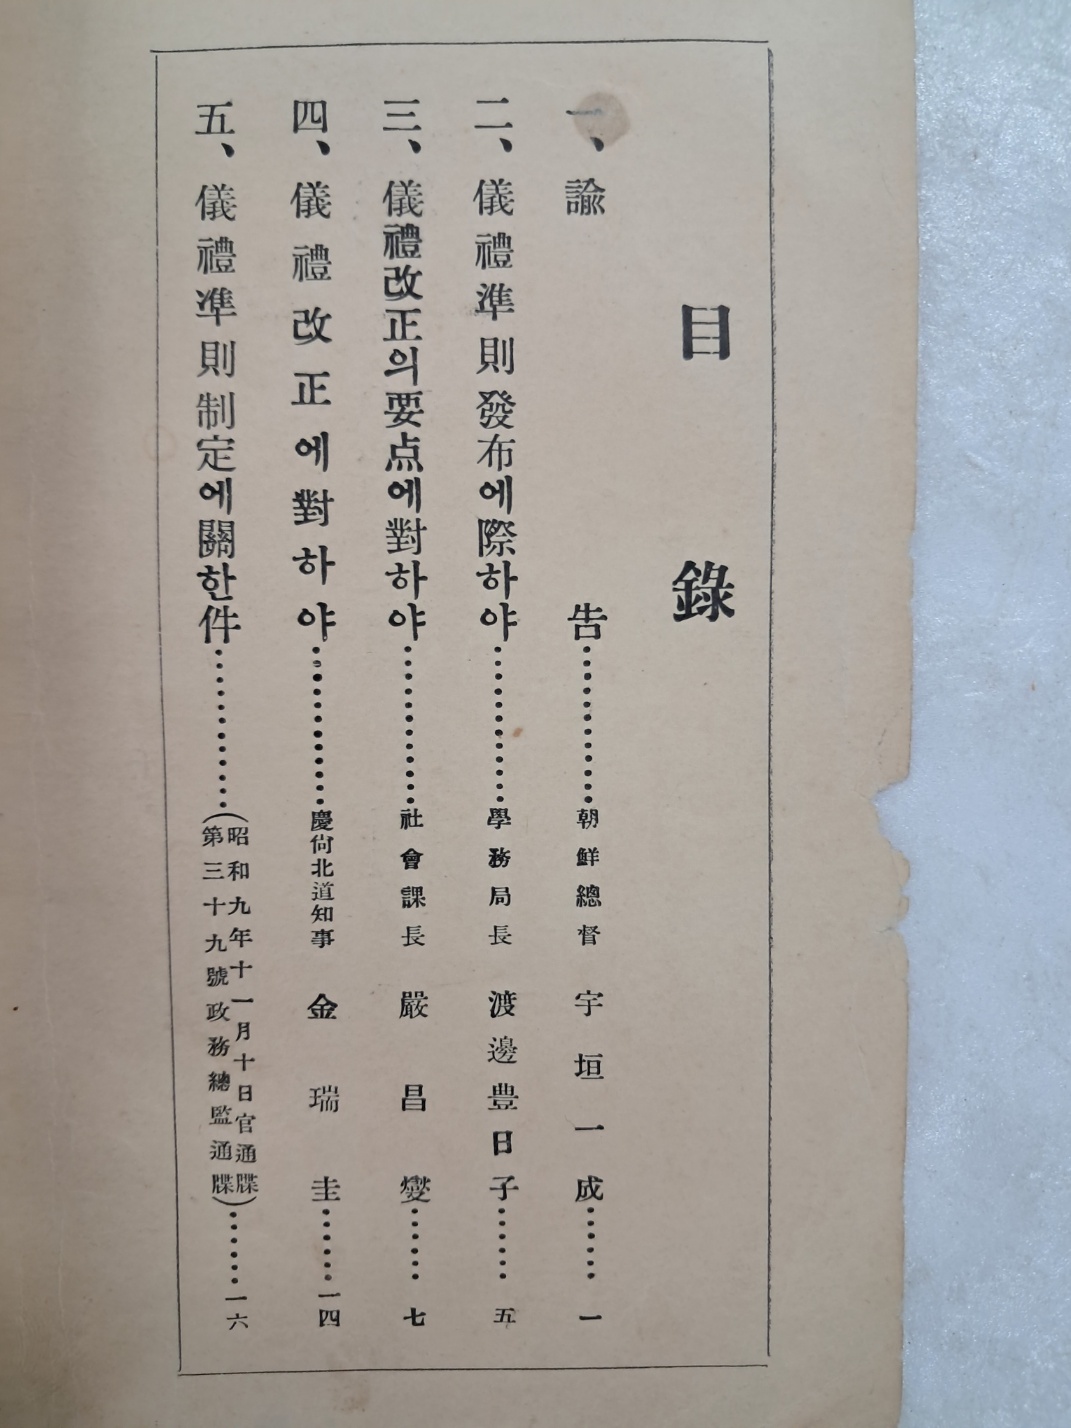 目錄
一、諭告…………朝鮮總督 宇垣一成……一
二、儀禮準則發布에際하야…………學務局長 渡邊豊日子……五
三、儀禮改正의要点에對하야…………社會課長 嚴昌燮……七
四、儀禮改正에對하야…………慶尙北道知事 金瑞圭……一四
五、儀禮準則制定에關한件…………(昭和九年十一月十日官通牒
第三十九號政務總監通牒)……一六